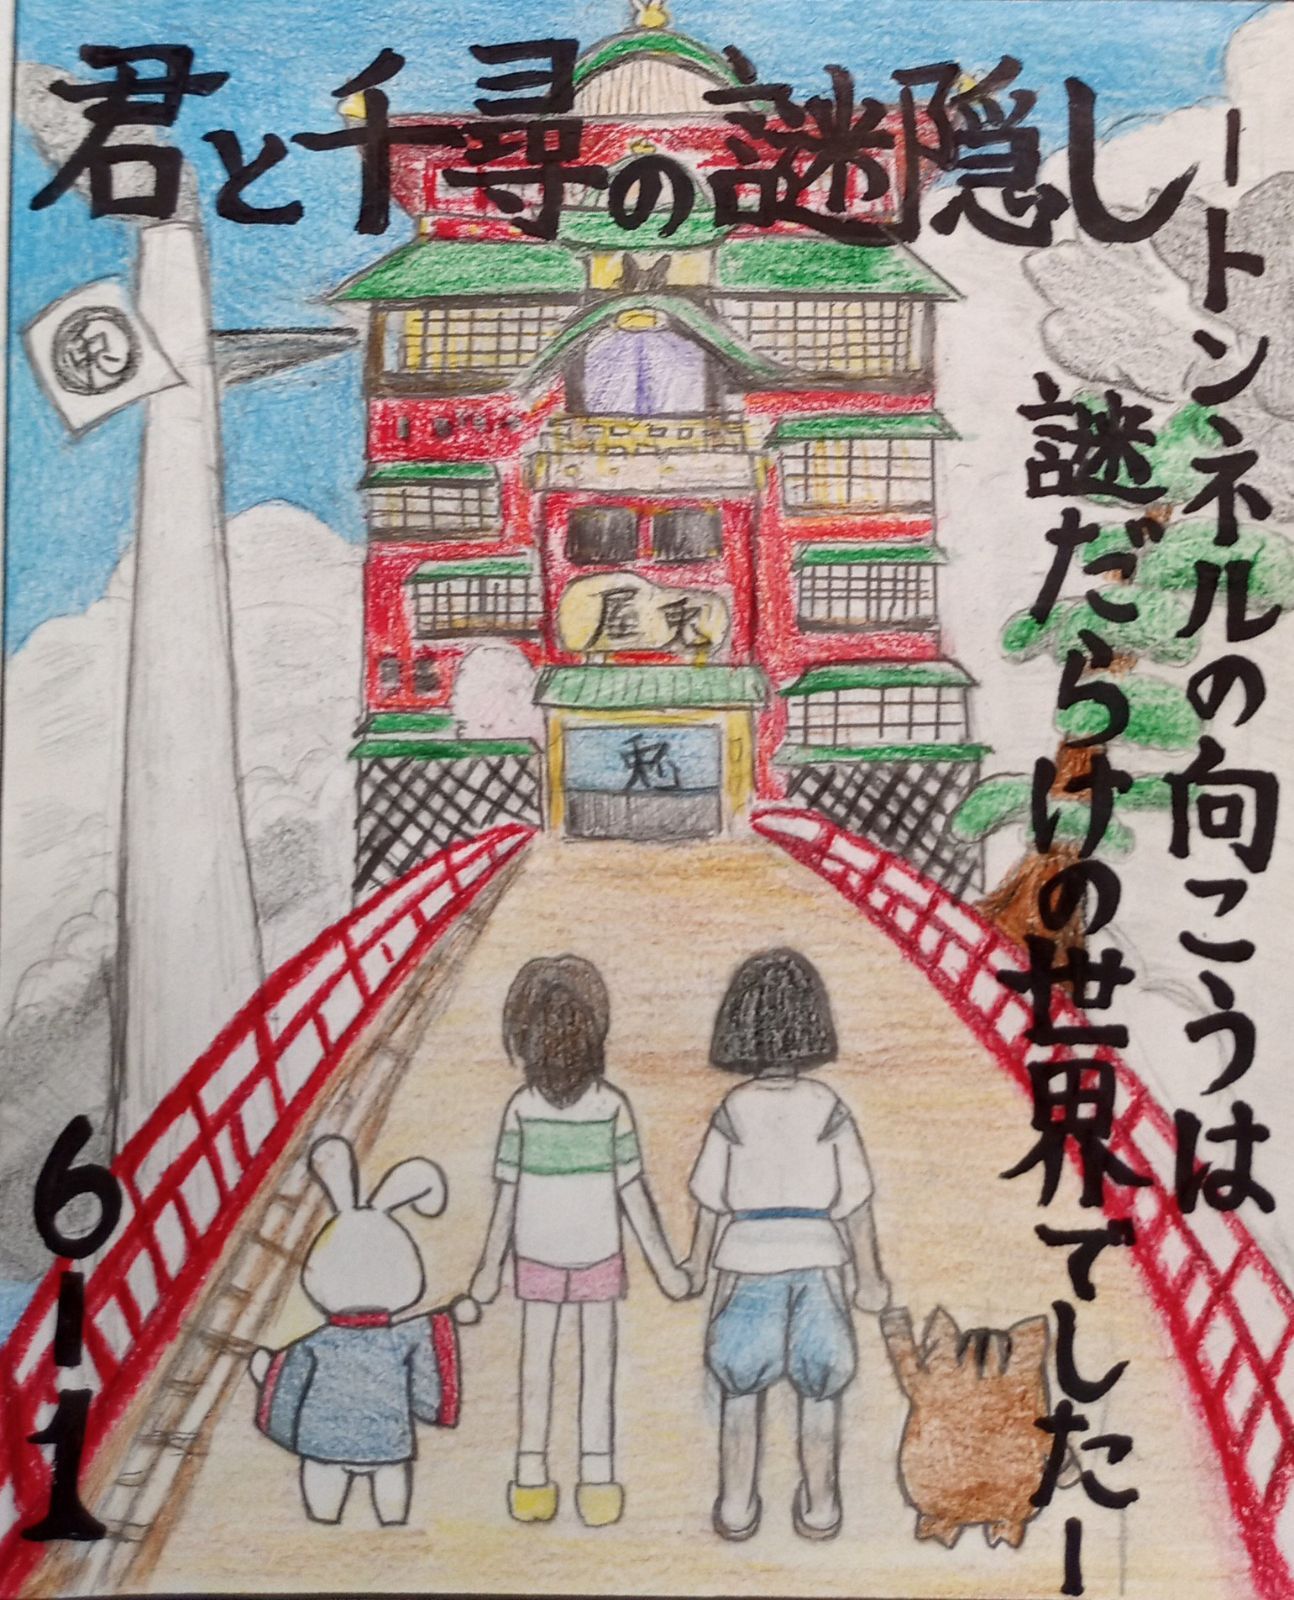 君と千尋の謎隠し
ートンネルの向こうは
謎だらけの世界でしたー
兎
兎屋
兎
6-1